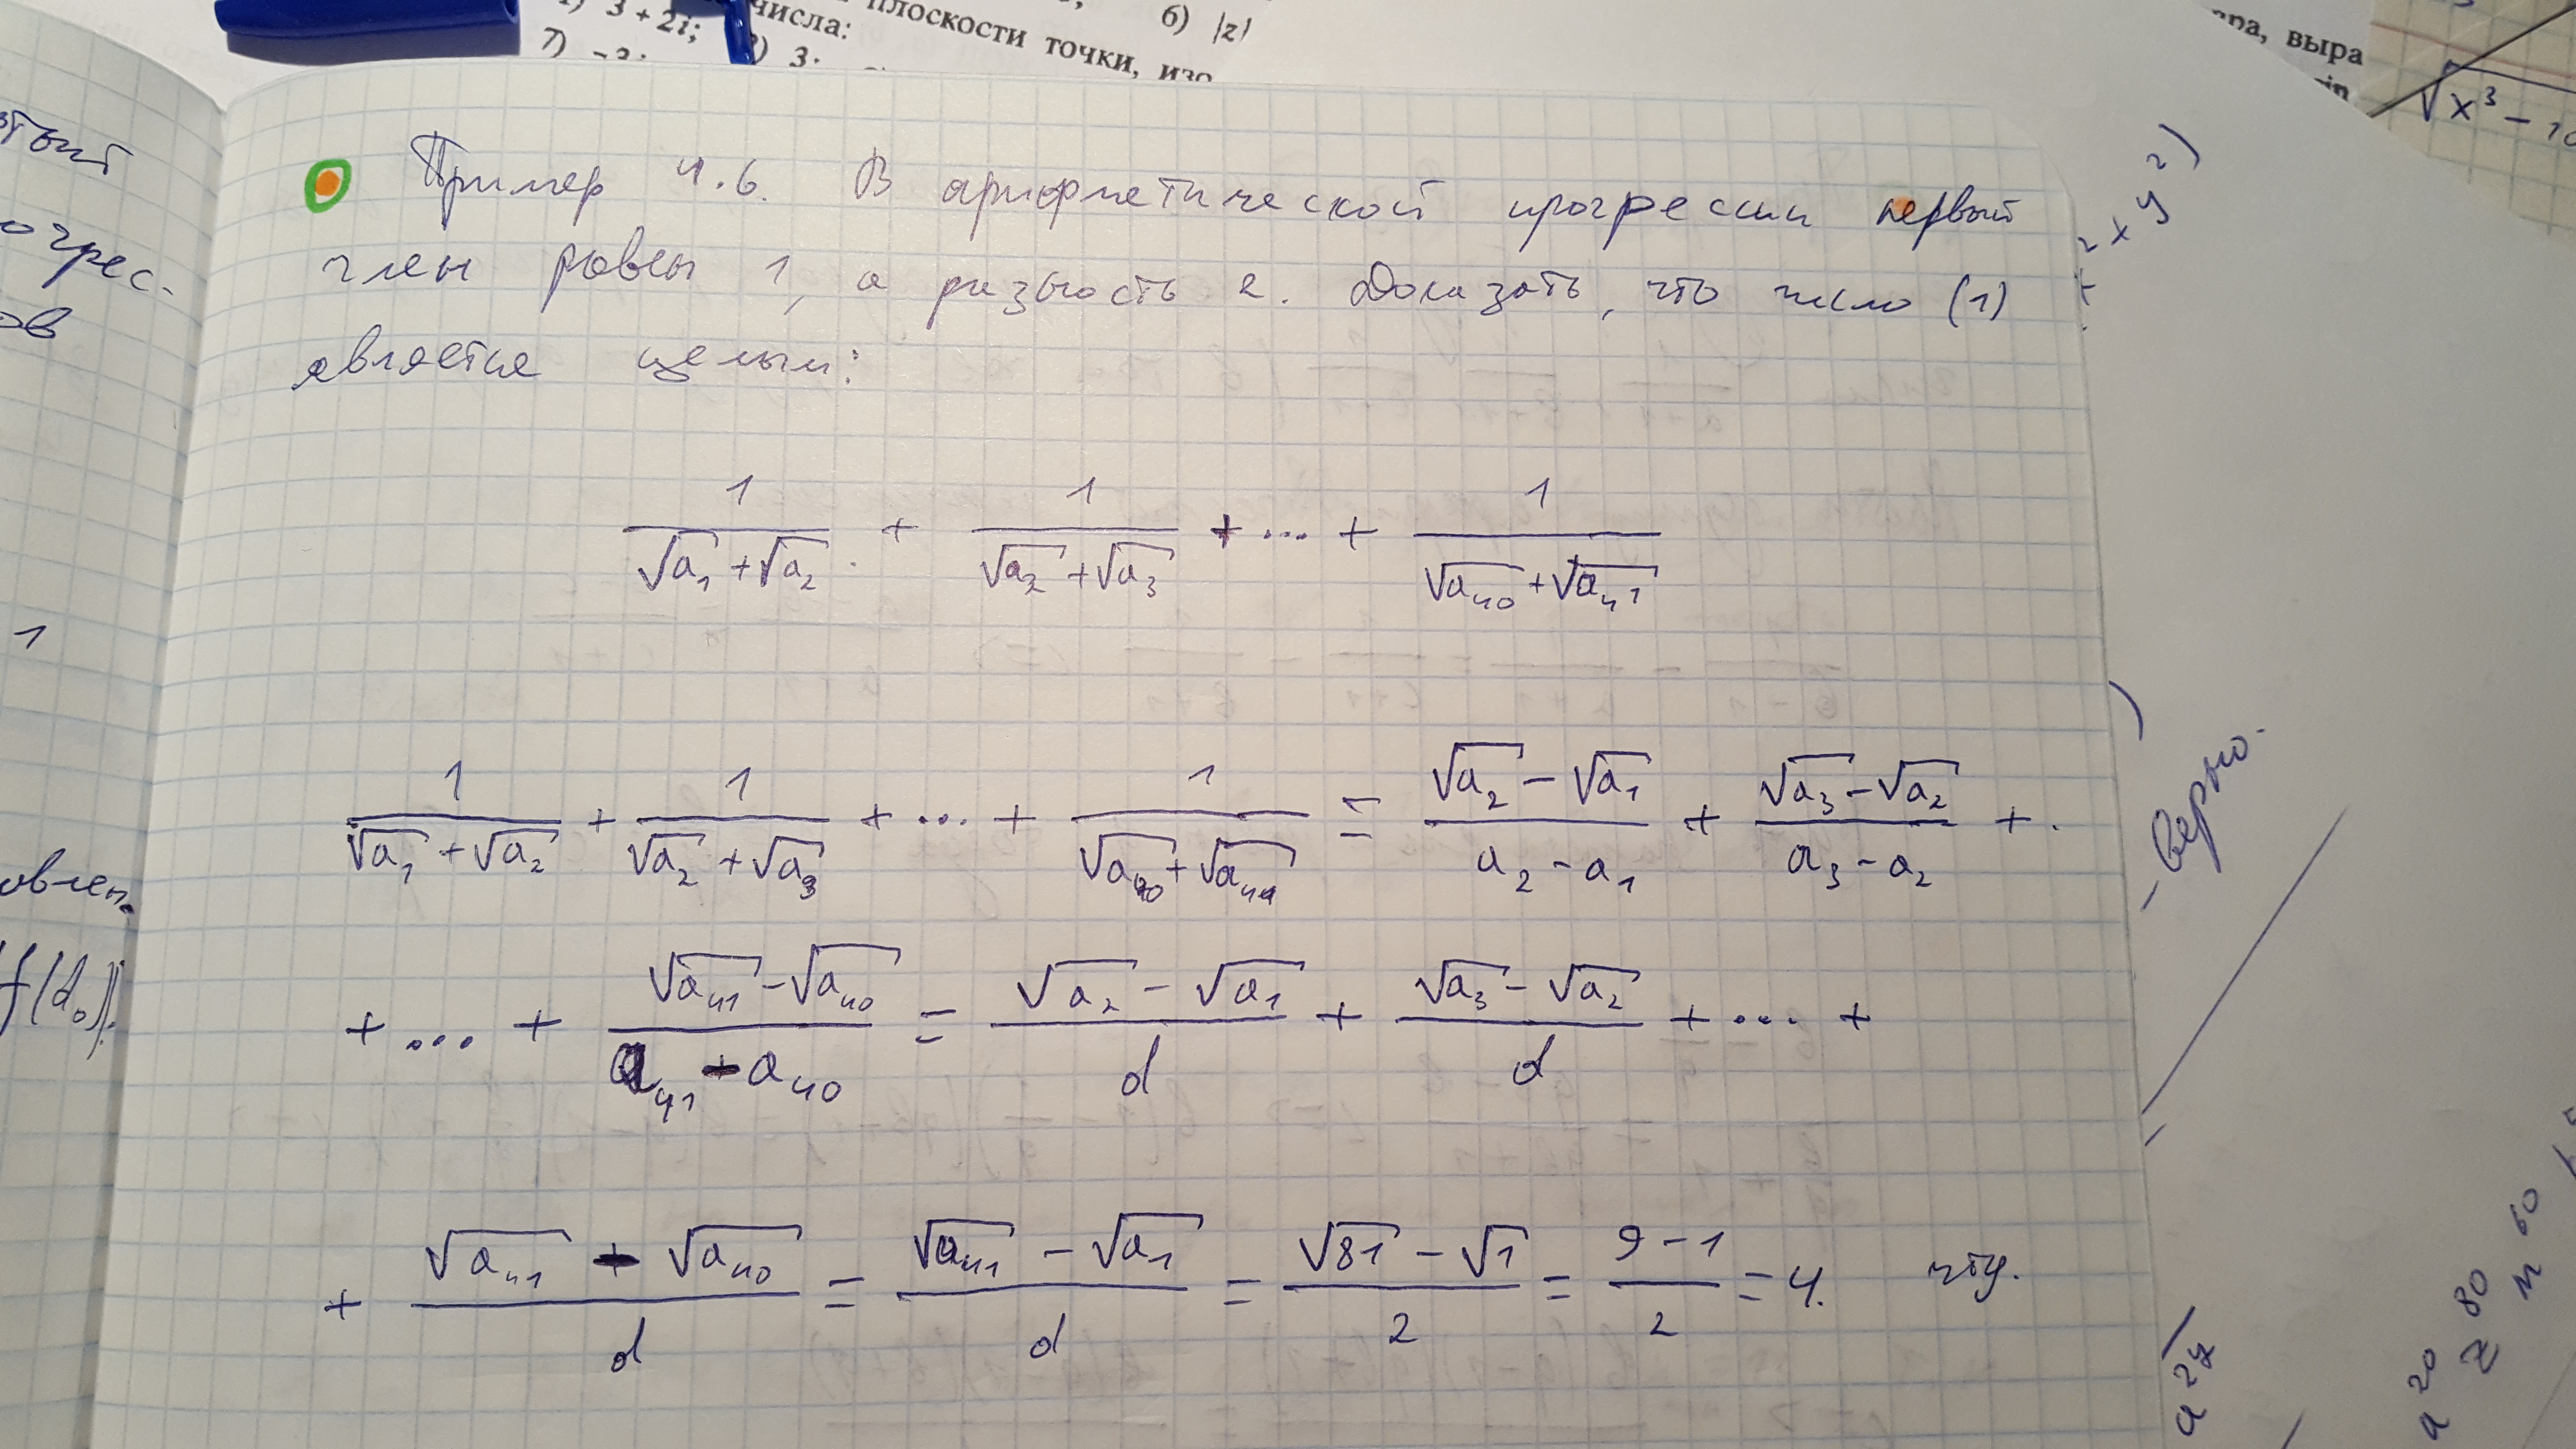 числа:
плоскости точки, изо
3 + 2i;
6) |z|
7) -3;
3;
ара, выра
√x³ - 10
Пример 4.6. В арифметической прогрессии первый
член равен 1, а разность 2. Доказать, что число (1)
является целым:
1/(√a₁ + √a₂) + 1/(√a₂ + √a₃) + ... + 1/(√a₄₀ + √a₄₁)
1/(√a₁ + √a₂) + 1/(√a₂ + √a₃) + ... + 1/(√a₄₀ + √a₄₁) = (√a₂ - √a₁)/(a₂ - a₁) + (√a₃ - √a₂)/(a₃ - a₂) + .
+ ... + (√a₄₁ - √a₄₀)/(a₄₁ - a₄₀) = (√a₂ - √a₁)/d + (√a₃ - √a₂)/d + ... +
+ (√a₄₁ - √a₄₀)/d = (√a₄₁ - √a₁)/d = (√81 - √1)/2 = (9 - 1)/2 = 4. чтд.
тый
огрес-
ов
1
овлен.
f(d₀)).
² + y²)
- Верно.